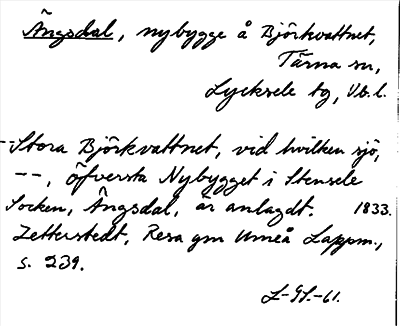 Ängsdal, nybygge å Björkvattnet,
Tärna sn,
Lycksele tg, V.b.l.
--Stora Björkvattnet, vid hvilken sjö,
--, öfversta Nybygget i Stensele
Socken, Ängsdal, är anlagdt. 1833.
Zetterstedt, Resa gm Umeå Lappm.,
s. 239.